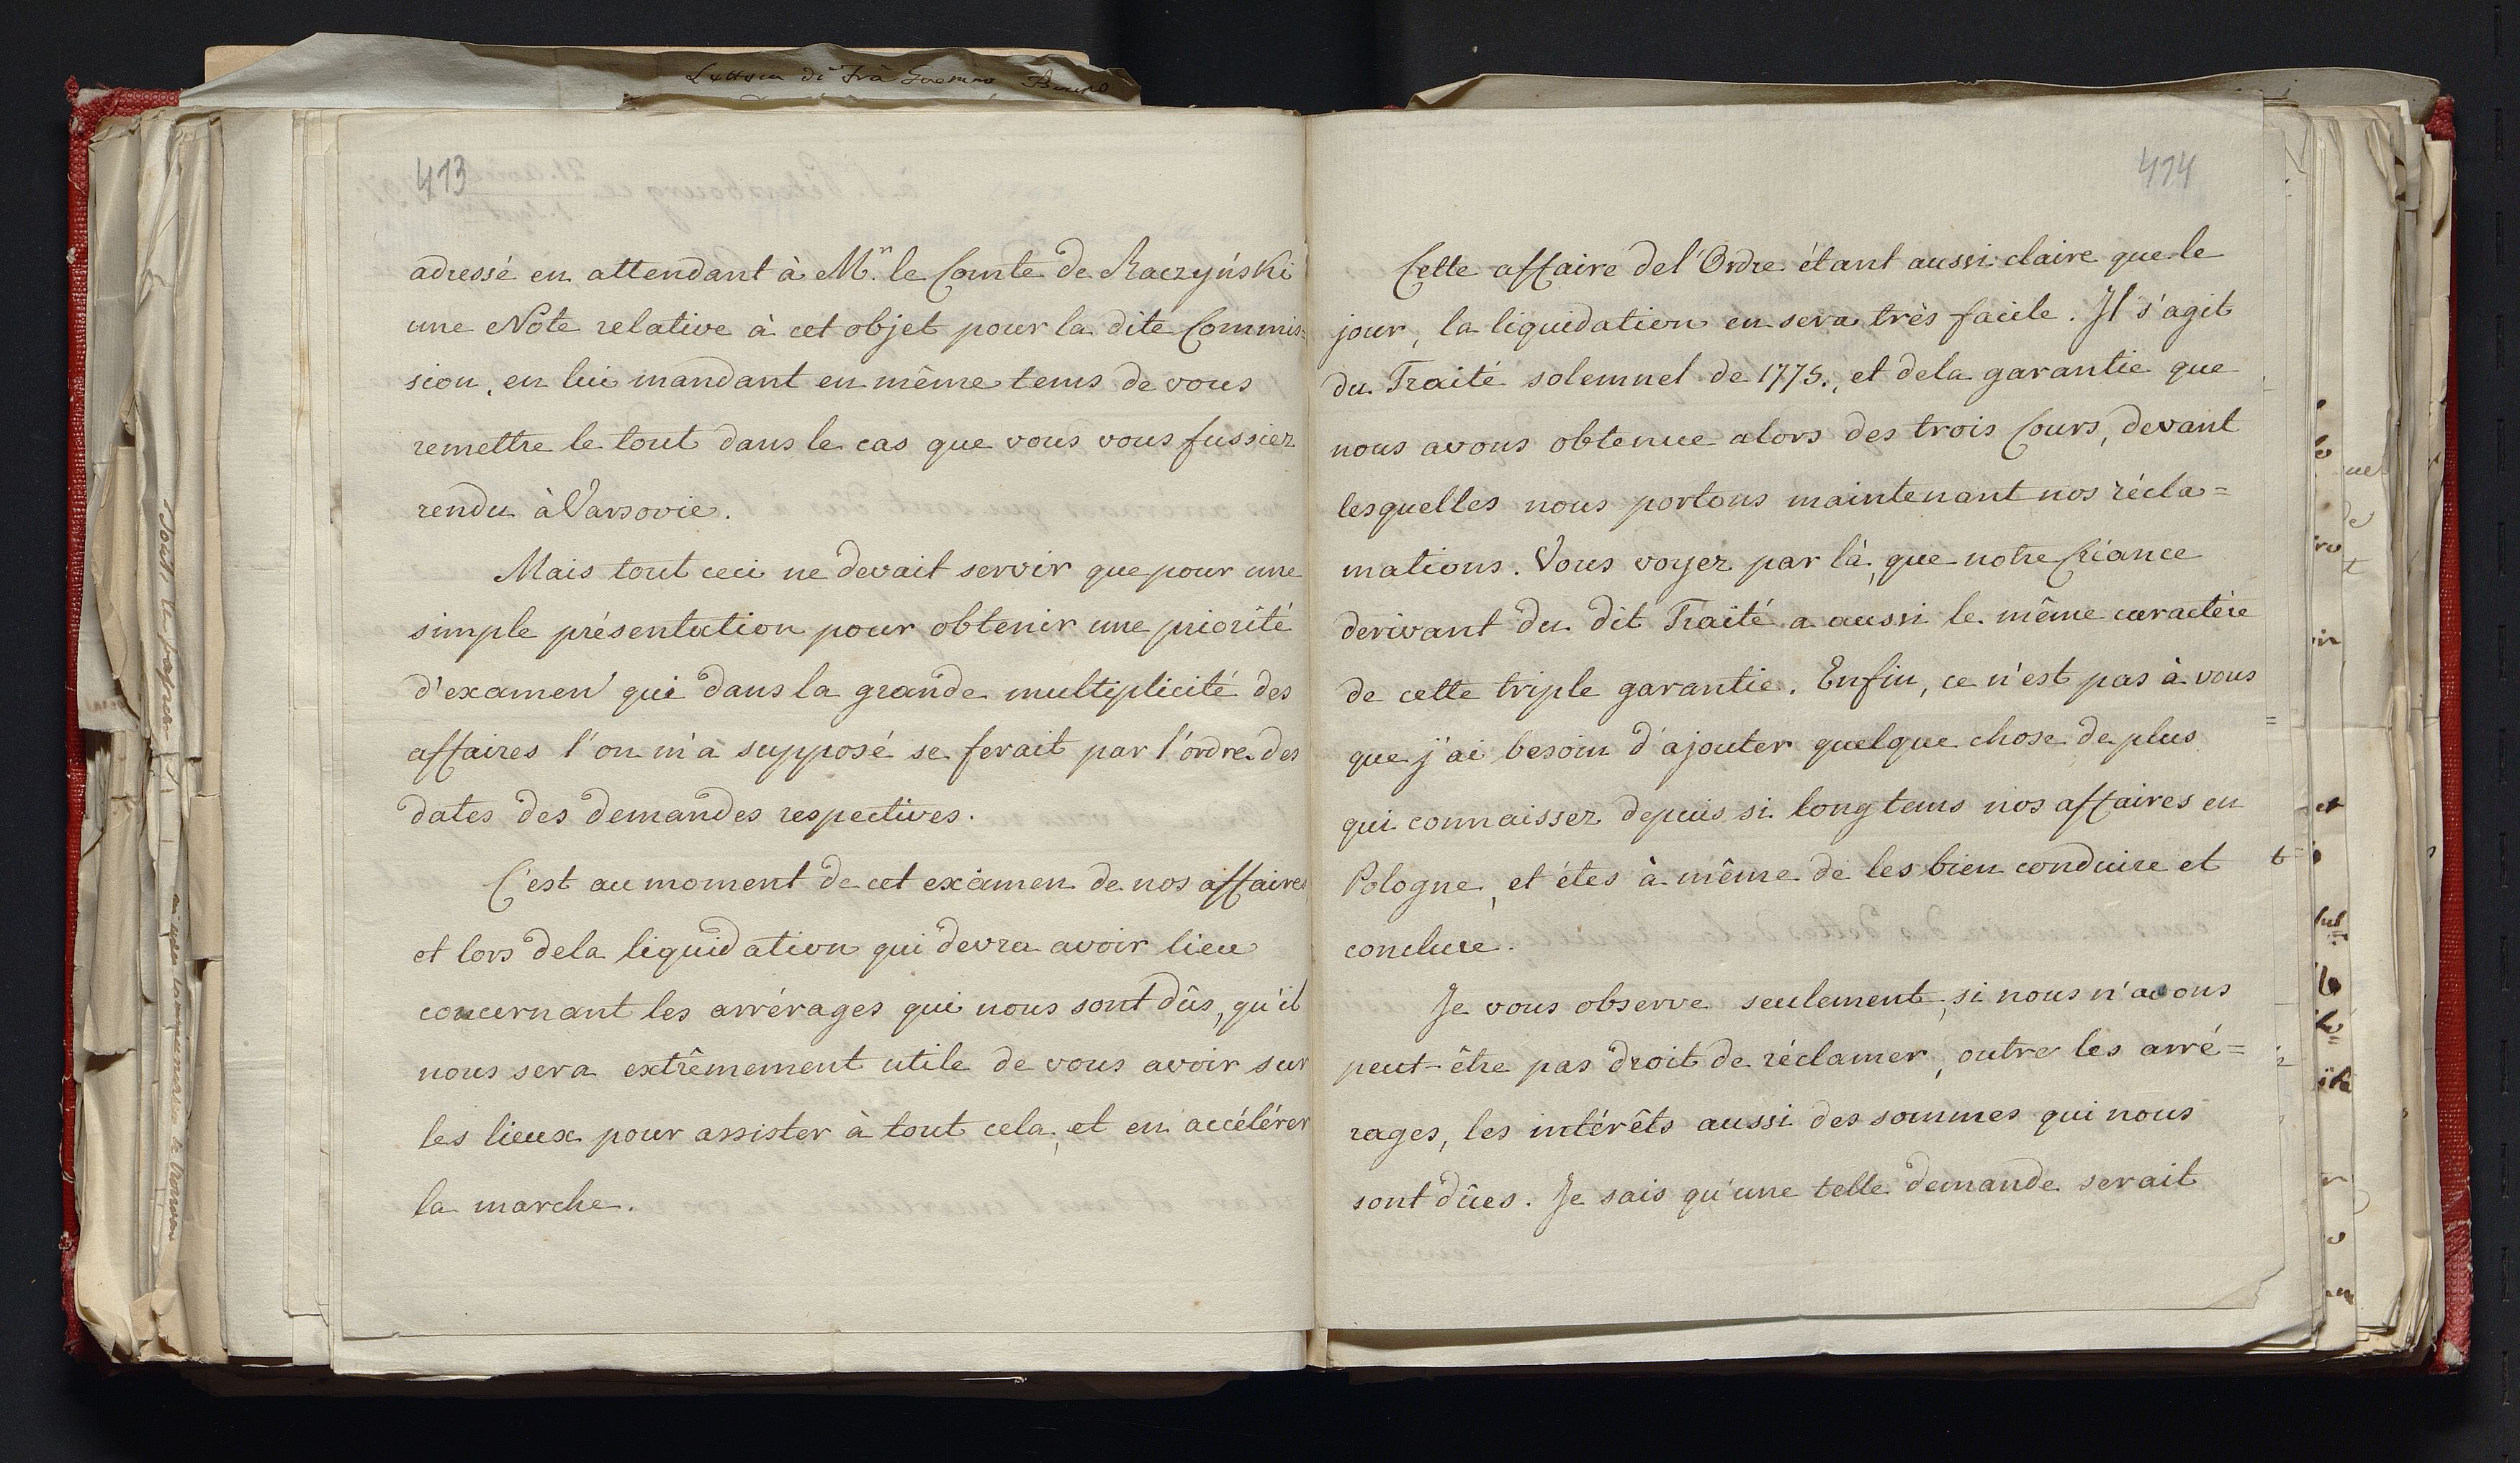 413
adressé en attendant à M.r le Comte de Raczyński
une Note relative à cet objet pour la dite Commis=
sion, en lui mandant en même tems de vous
remettre le tout dans le cas que vous vous fussiez
rendu à Varsovie.
Mais tout ceci ne devait servir que pour une
simple présentation pour obtenir une priorité
d'examen qui dans la grande multiplicité des
affaires l'on m'a supposé se ferait par l'ordre des
dates des demandes respectives.
C'est au moment de cet exàmen de nos affaires
et lors dela liquidation qui devra avoir lieu
concernant les arrérages qui nous sont dûs, qu'il
nous sera extrêmement utile de vous avoir sur
les lieux pour assister à tout cela, et en accélérer
la marche.
414
Cette affaire del'Ordre étant aussi claire que le
jour, la liquidation en sera très facile. Il s'agit
du Traité solemnel de 1775., et dela garantie que
nous avons obtenue alors des trois Cours, devant
lesquelles nous portons maintenant nos récla=
mations. Vous voyez par là, que notre Créance
derivant du dit Traité a aussi le même caractère
de cette triple garantie. Enfin, ce n'est pas à vous
que j'ai besoin d'ajouter quelque chose de plus
qui connaissez depuis si longtems nos affaires en
Pologne, et étes à même de les bien conduire et
conclure.
Je vous observe seulement, si nous n'avons
peut-être pas droit de réclamer, outre les arré=
rages, les intérêts aussi des sommes qui nous
sont dûes. Je sais qu'une telle demande serait